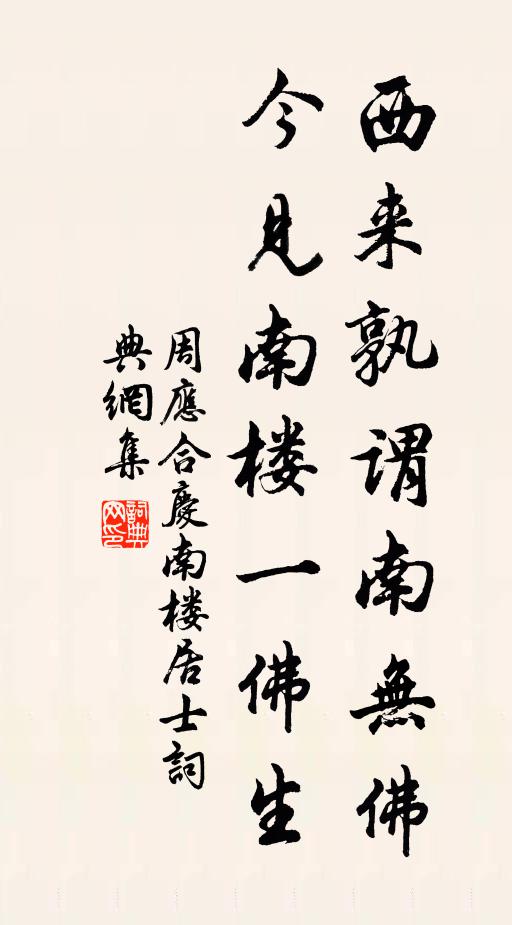 西来孰谓南無佛
今見南楼一佛生
周應合慶南楼居士詞
典網集
詞典网印